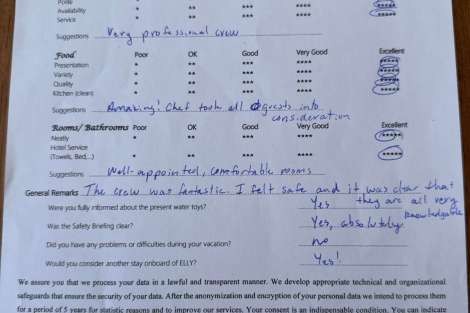 Polite
Availability * ** *** **** *****
Service * ** *** **** *****
Suggestions Very professional crew
Food Poor OK Good Very Good Excellent
Presentation * ** *** **** *****
Variety * ** *** **** *****
Quality * ** *** **** *****
Kitchen (clean) * ** *** **** *****
Suggestions Amazing! Chef took all guests into
consideration
Rooms/ Bathrooms Poor OK Good Very Good Excellent
Neatly * ** *** **** *****
Hotel Service
(Towels, Bed,..) * ** *** **** *****
Suggestions Well-appointed, comfortable rooms
General Remarks The crew was fantastic. I felt safe and it was clear that
they are all very
knowledgable
Were you fully informed about the present water toys? Yes
Was the Safety Briefing clear? Yes, absolutely
Did you have any problems or difficulties during your vacation? no
Would you consider another stay onboard of ELLY? Yes!
We assure you that we process your data in a lawful and transparent manner. We develop appropriate technical and organizational
safeguards that ensure the security of your data. After the anonymization and encryption of your personal data we intend to process them
for a period of 5 years for statistic reasons and to improve our services. Your consent is an indispensable condition. You can indicate